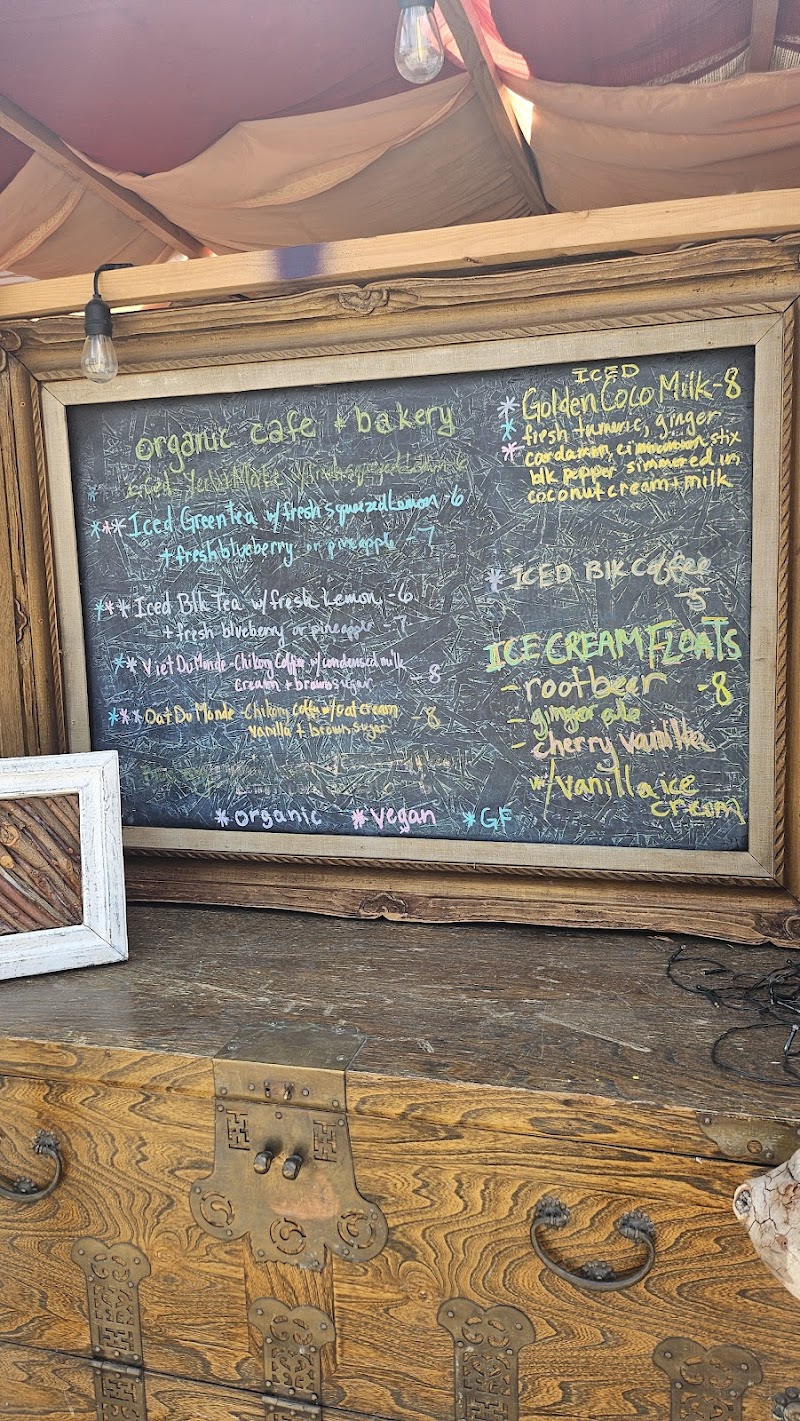 organic cafe + bakery
Iced Yerba Mate w/fresh squeezed Lemon - 6
***Iced Green Tea w/fresh squeezed Lemon - 6
+ fresh blueberry or pineapple - 7
***Iced Blk Tea w/fresh Lemon - 6
+ fresh blueberry or pineapple - 7
**Viet Du Monde - Chikory Coffee w/condensed milk
cream + brown sugar - 8
***Oat Du Monde - Chikory Coffee w/oat cream
vanilla + brown sugar - 8
*organic *vegan *GF
ICED
*Golden Coco Milk - 8
*fresh tumeric, ginger
*cardamon, cinnamon stix
blk pepper simmered in
coconut cream + milk
*ICED Blk Coffee
- 5
ICE CREAM FLOATS
- root beer - 8
- ginger ale
- cherry vanilla
w/vanilla ice
cream